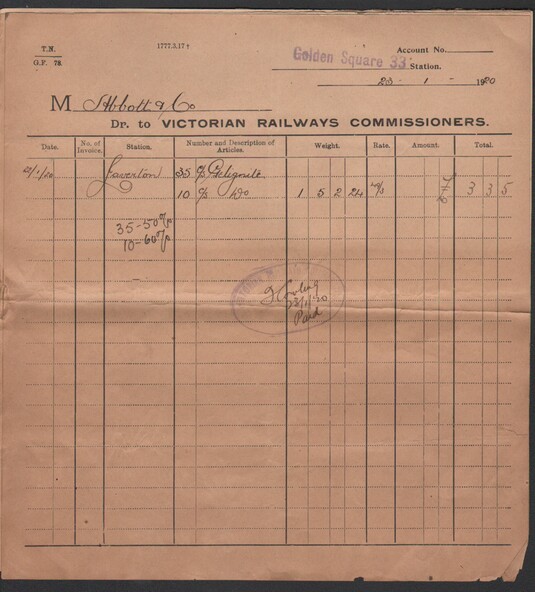 T.N.
G.F. 78.
1777.3.17
Golden Square 33
Account No.
Station.
23 - 1 - 1920
M Abbott & Co
Dr. to VICTORIAN RAILWAYS COMMISSIONERS.
Date. No. of Invoice. Station. Number and Description of Articles. Weight. Rate. Amount. Total.
21/1/20 Laverton 35 c/s Gelignite
10 c/s Do 1 5 2 24 3 3 5
35-50
10-60
23/1/20
Paid